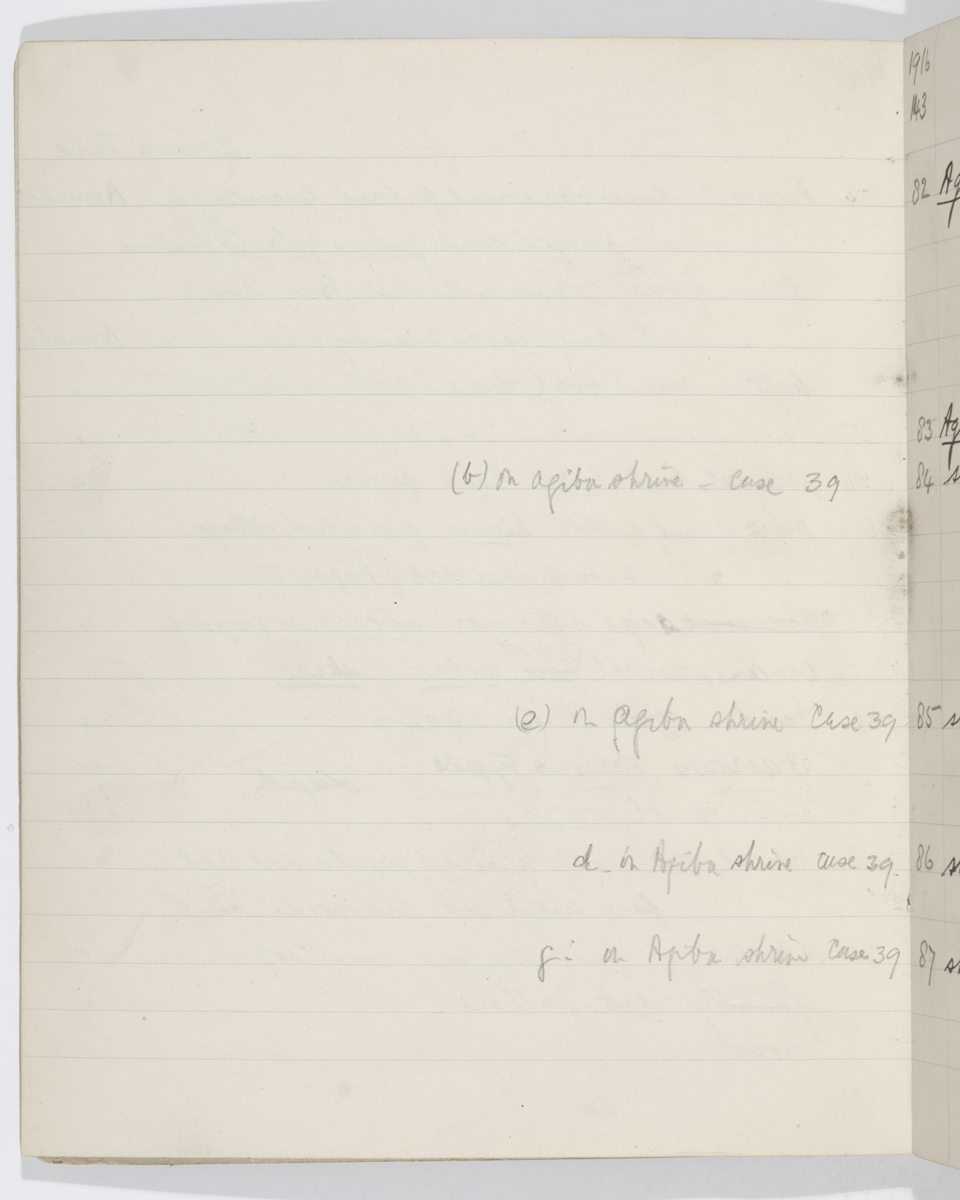 (b) on agiba shrine - case 39
(e) on Agiba shrine Case 39
d. in Agiba shrine case 39.
g :- on Agiba shrine Case 39
1916
143
82 Ag
83 Ag
84
85
86
87